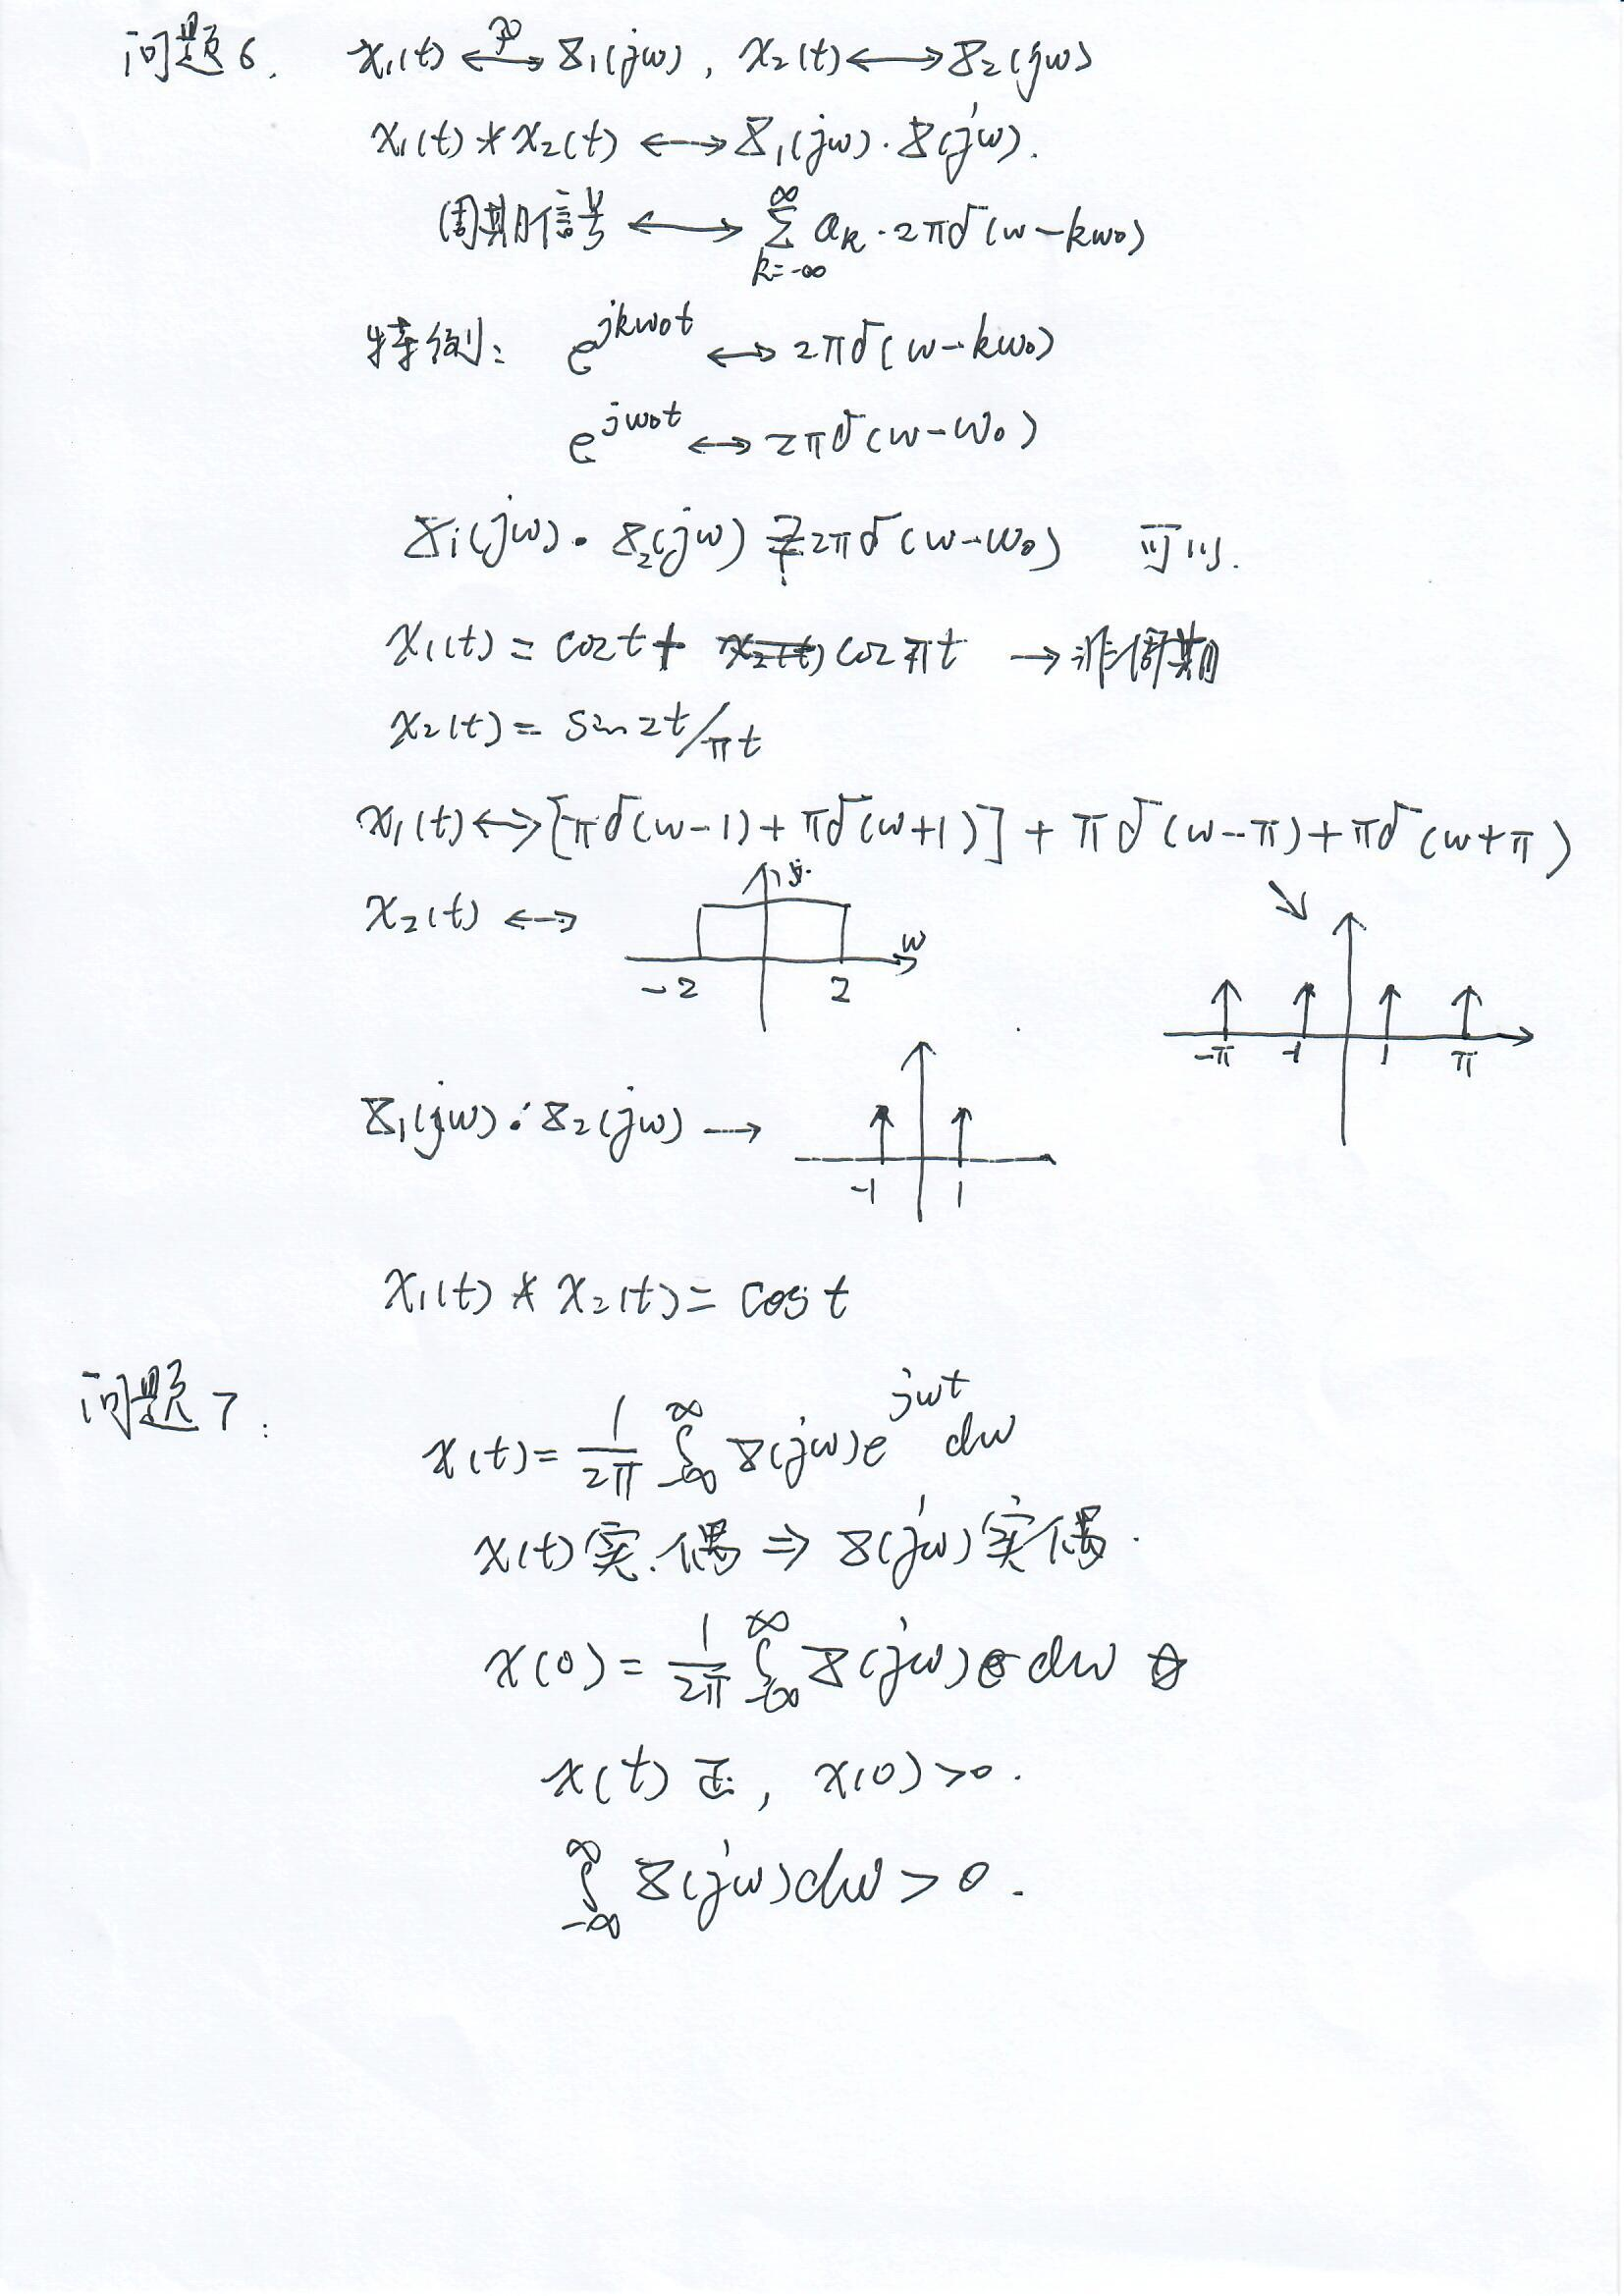 问题6. x₁(t) ⟷ X₁(jω), x₂(t) ⟷ X₂(jω)
x₁(t) * x₂(t) ⟷ X₁(jω)·X(jω).
周期信号 ⟷ ∑_{k=-∞}^{∞} a_k·2πδ(ω-kω₀)
特例: e^{jkω₀t} ⟷ 2πδ(ω-kω₀)
e^{jω₀t} ⟷ 2πδ(ω-ω₀)
X₁(jω)·X₂(jω) 2πδ(ω-ω₀) 可以.
x₁(t) = cos t + cos πt → 非周期
x₂(t) = sin 2t/πt
x₁(t) ⟷ [πδ(ω-1) + πδ(ω+1)] + πδ(ω-π) + πδ(ω+π)
x₂(t) ⟷
ω
-2 2
-π -1 1 π
X₁(jω)·X₂(jω) →
-1 1
x₁(t) * x₂(t) = cos t
问题7:
x(t) = 1/2π ∫_{-∞}^{∞} X(jω)e^{jωt} dω
x(t)实.偶 ⇒ X(jω)实偶.
x(0) = 1/2π ∫_{-∞}^{∞} X(jω) dω
x(t) 正, x(0) > 0.
∫_{-∞}^{∞} X(jω)dω > 0.